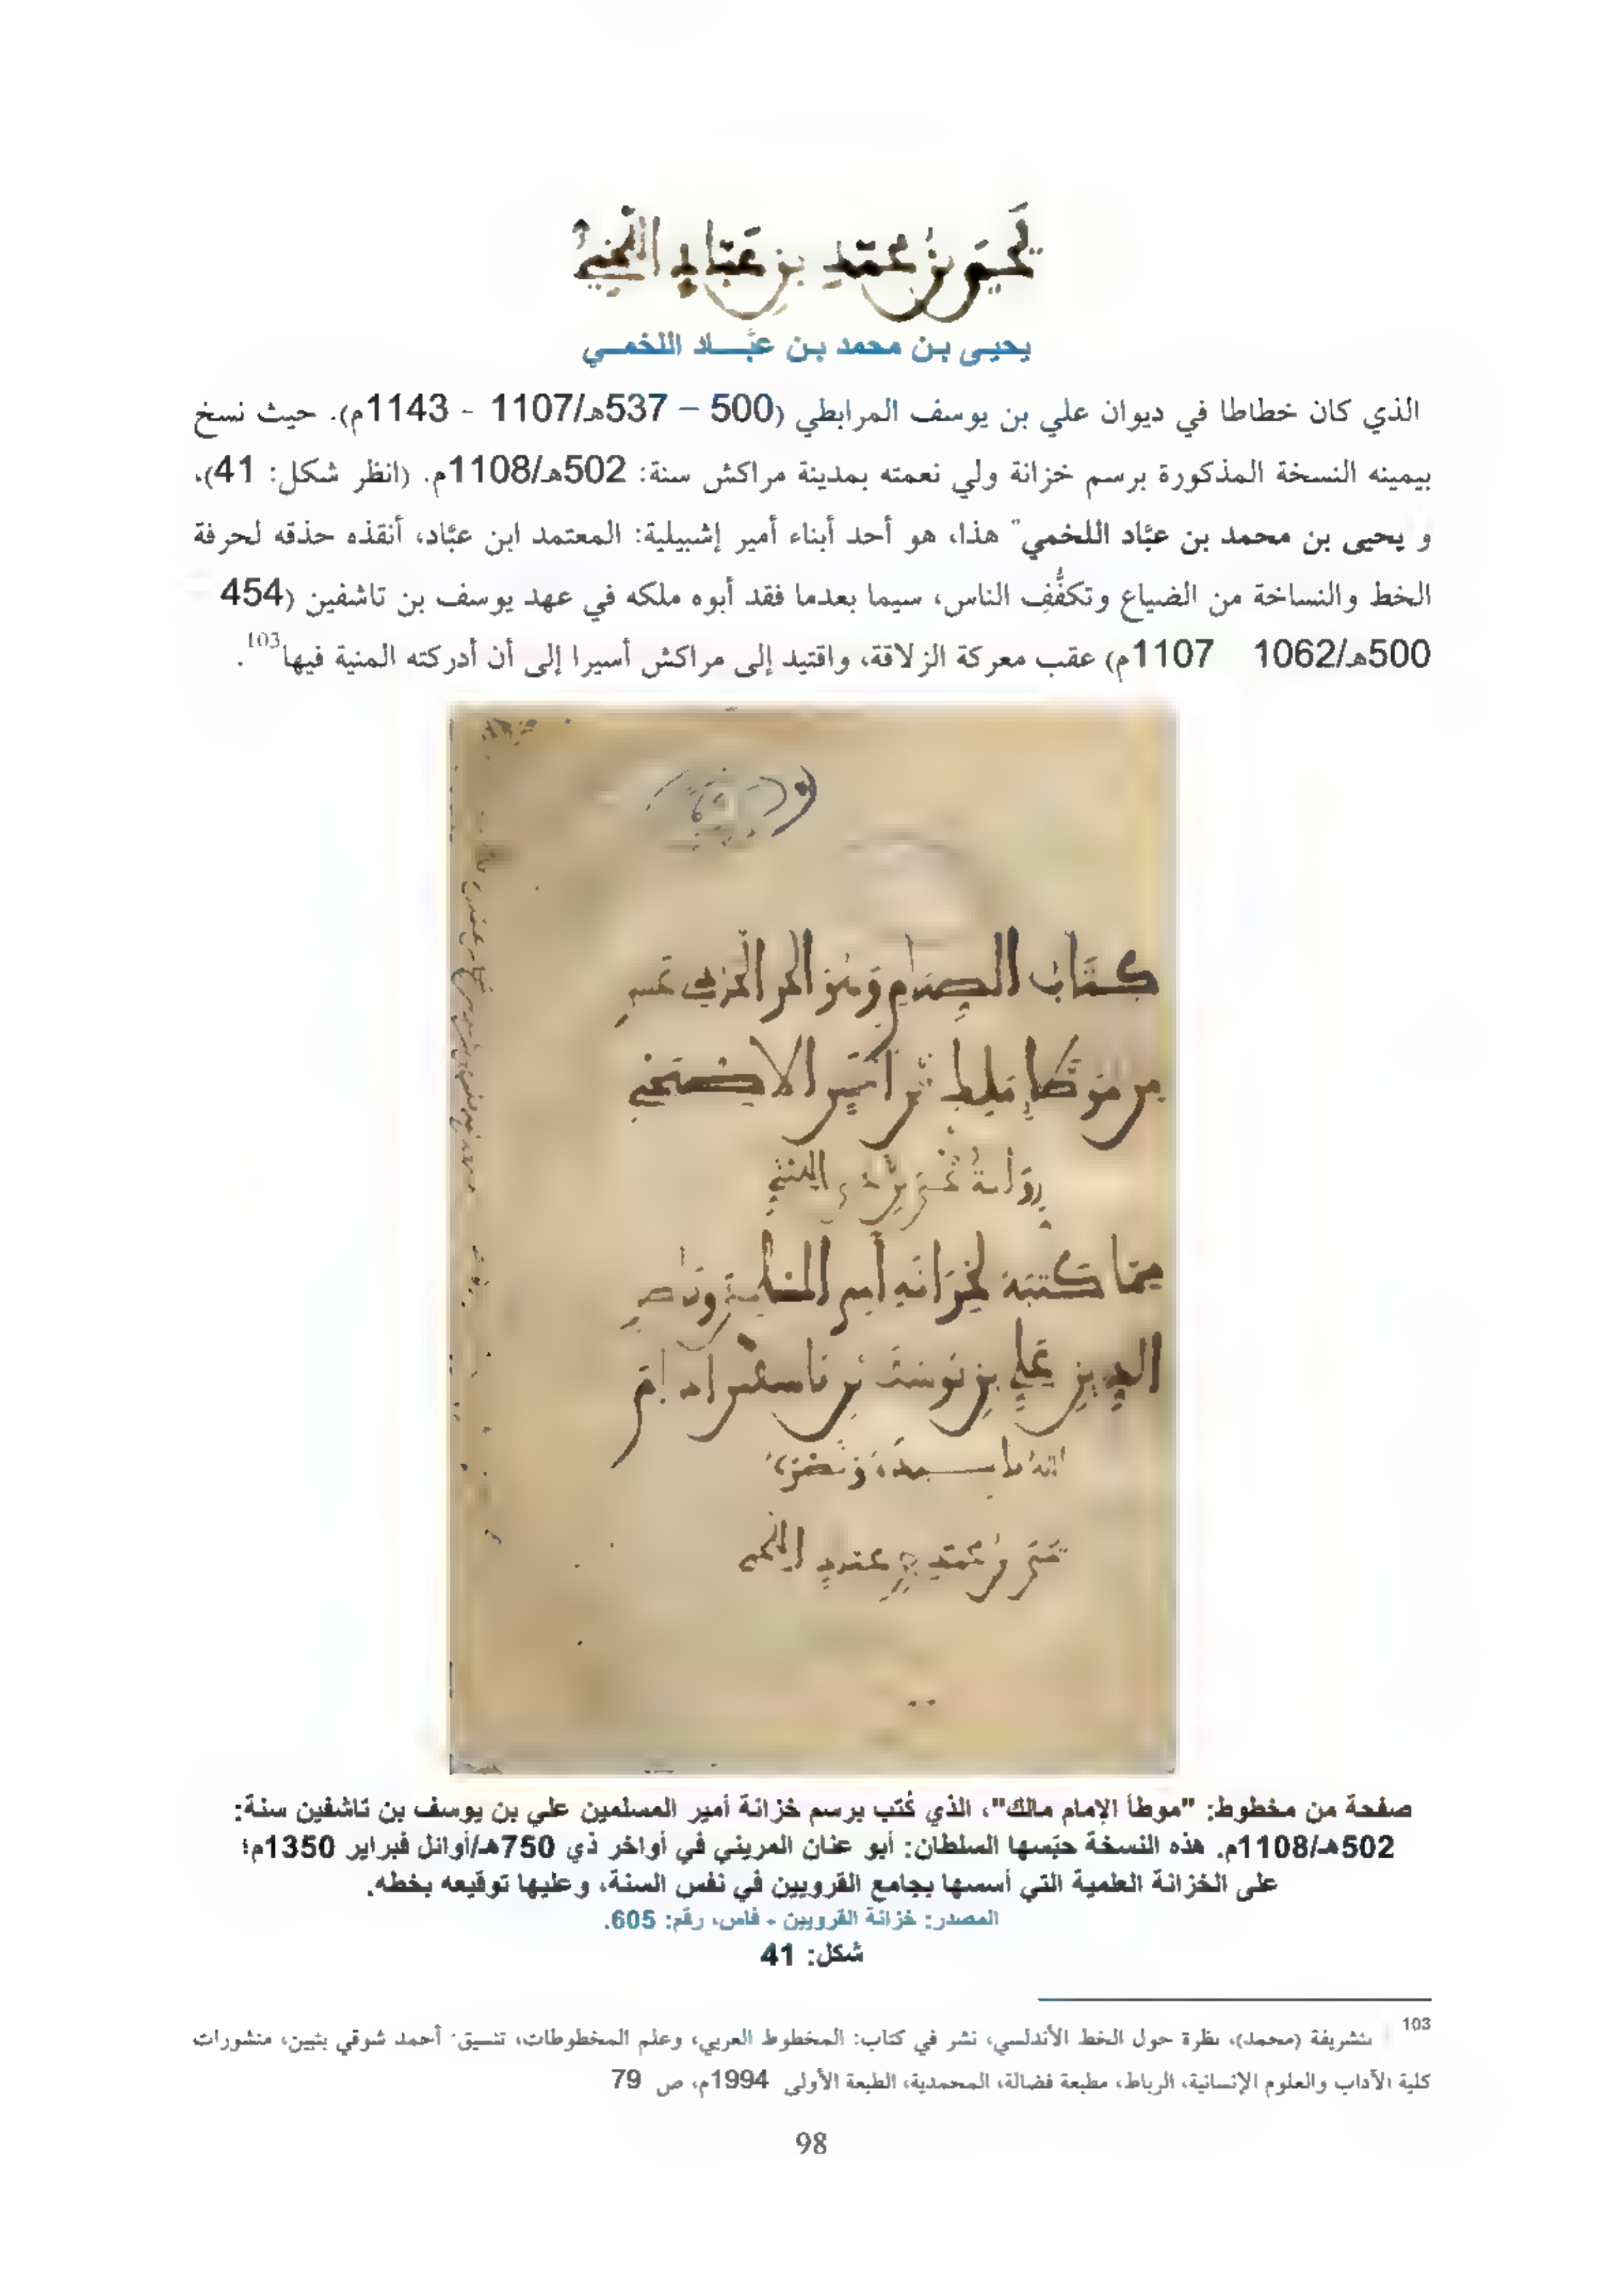 يحيى بن محمد بن عبّاد اللخمي
يحيى بن محمد بن عبَّـــاد اللخمـــي
الذي كان خطاطا في ديوان علي بن يوسف المرابطي (500 – 537هـ/1107 - 1143م). حيث نسخ
بيمينه النسخة المذكورة برسم خزانة ولي نعمته بمدينة مراكش سنة: 502هـ/1108م. (انظر شكل: 41)،
و يحيى بن محمد بن عبّاد اللخمي" هذا، هو أحد أبناء أمير إشبيلية: المعتمد ابن عبّاد، أنقذه حذقه لحرفة
الخط والنساخة من الضياع وتكفُّفِ الناس، سيما بعدما فقد أبوه ملكه في عهد يوسف بن تاشفين (454
500هـ/1062 1107م) عقب معركة الزلاقة، واقتيد إلى مراكش أسيرا إلى أن أدركته المنية فيها103.
كتاب الصيام وهو الجزء
من موطإ ملك بن أنس الأصبحي
رواية يحيى بن اللیثي
مما كتبه لخزانة أمير المسلمين وناصر
الدين علي بن يوسف بن تاشفين أدام
الله تأييده ونصره
يحيى بن محمد بن عباد اللخمي
صفحة من مخطوط: "موطأ الإمام مالك"، الذي كُتب برسم خزانة أمير المسلمين علي بن يوسف بن تاشفين سنة:
502هـ/1108م. هذه النسخة حبّسها السلطان: أبو عنان المريني في أواخر ذي 750هـ/أوائل فبراير 1350م؛
على الخزانة العلمية التي أسسها بجامع القرويين في نفس السنة، وعليها توقيعه بخطه.
المصدر: خزانة القرويين - فاس، رقم: 605.
شكل: 41
103 بنشريفة (محمد)، نظرة حول الخط الأندلسي، نشر في كتاب: المخطوط العربي، وعلم المخطوطات، تنسيق: أحمد شوقي بنبين، منشورات
كلية الآداب والعلوم الإنسانية، الرباط، مطبعة فضالة، المحمدية، الطبعة الأولى 1994م، ص 79
98